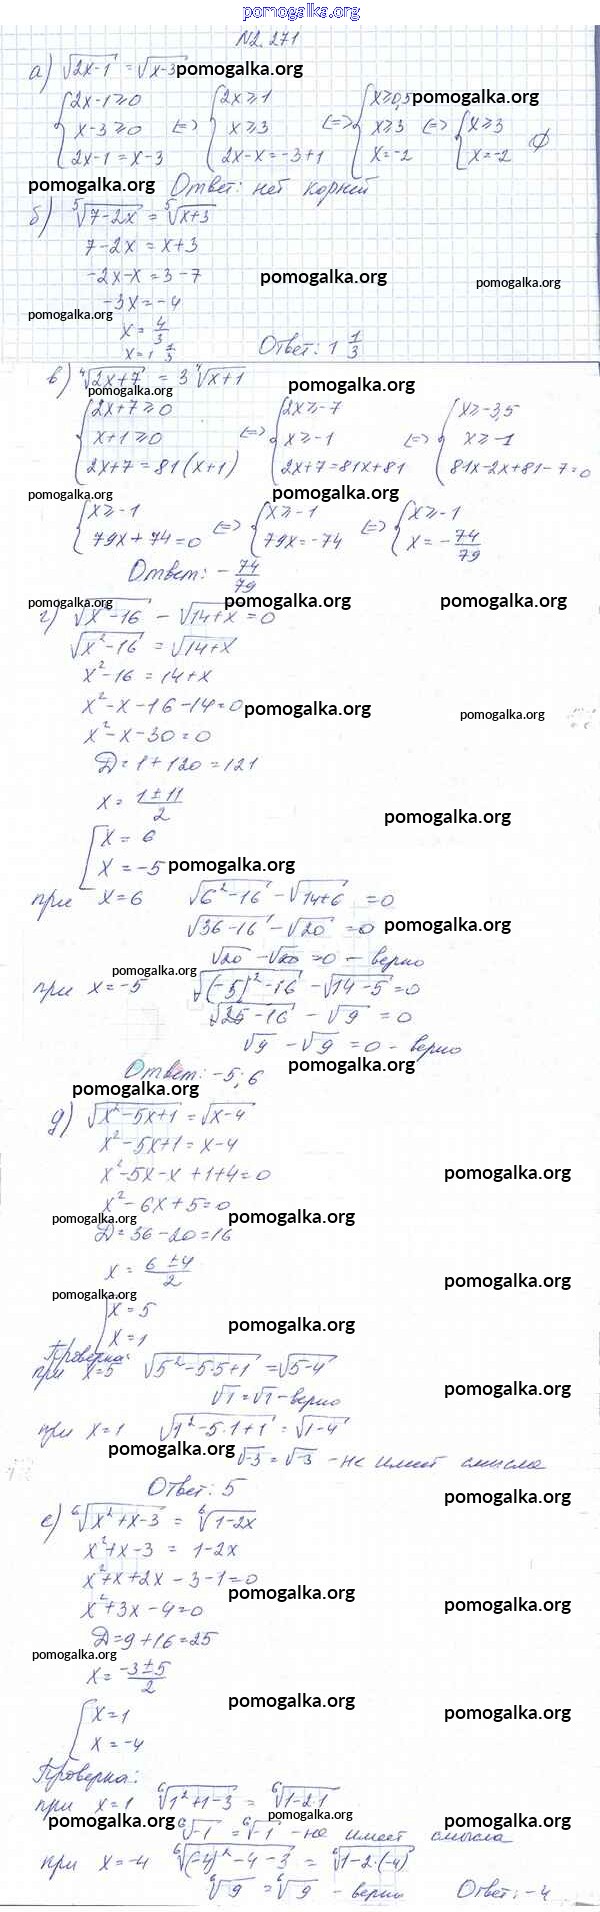 pomogalka.org
№2.271
а) √(2x-1) = √(x-3) pomogalka.org
{ 2x-1≥0 { 2x≥1 { x≥0,5 pomogalka.org
{ x-3≥0 <=> { x≥3 <=> { x≥3 <=> { x≥3
{ 2x-1=x-3 { 2x-x=-3+1 { x=-2 { x=-2 ∅
pomogalka.org Ответ: нет корней
б) ⁵√(7-2x) = ⁵√(x+3)
7-2x=x+3
-2x-x=3-7 pomogalka.org pomogalka.org
-3x=-4
pomogalka.org x=4/3
x=1 1/3 Ответ: 1 1/3
в) ⁴√(2x+7) = 3 ⁴√(x+1) pomogalka.org
pomogalka.org
{ 2x+7≥0 { 2x≥-7 { x≥-3,5
{ x+1≥0 <=> { x≥-1 <=> { x≥-1
{ 2x+7=81(x+1) { 2x+7=81x+81 { 81x-2x+81-7=0
pomogalka.org pomogalka.org
{ x≥-1 { x≥-1 { x≥-1
{ 79x+74=0 <=> { 79x=-74 <=> { x=-74/79
Ответ: -74/79
pomogalka.org pomogalka.org pomogalka.org
г) √(x²-16) - √(14+x) = 0
√(x²-16) = √(14+x)
x²-16=14+x
x²-x-16-14=0 pomogalka.org pomogalka.org
x²-x-30=0
D=1+120=121
x=(1±11)/2
pomogalka.org
[ x=6
[ x=-5 pomogalka.org
при x=6 √(6²-16) - √(14+6) = 0
√(36-16) - √20 = 0 pomogalka.org
√20 - √20 = 0 - верно
pomogalka.org
при x=-5 √((-5)²-16) - √(14-5) = 0
√(25-16) - √9 = 0
√9 - √9 = 0 - верно
pomogalka.org
Ответ: -5; 6
pomogalka.org
д) √(x²-5x+1) = √(x-4)
x²-5x+1=x-4
x²-5x-x+1+4=0 pomogalka.org
x²-6x+5=0
pomogalka.org pomogalka.org
D=36-20=16
x=(6±4)/2 pomogalka.org
pomogalka.org
[ x=5 pomogalka.org
[ x=1
Проверка:
при x=5 √(5²-5·5+1) = √(5-4)
√1=√1 - верно pomogalka.org
при x=1 √(1²-5·1+1) = √(1-4)
pomogalka.org √-3 = √-3 - не имеет смысла
Ответ: 5 pomogalka.org
е) ⁶√(x²+x-3) = ⁶√(1-2x)
x²+x-3 = 1-2x
x²+x+2x-3-1=0
pomogalka.org pomogalka.org
x²+3x-4=0
D=9+16=25
pomogalka.org
x=(-3±5)/2
pomogalka.org pomogalka.org
[ x=1
[ x=-4
Проверка:
при x=1 ⁶√(1²+1-3) = ⁶√(1-2·1)
pomogalka.org pomogalka.org pomogalka.org
⁶√-1 = ⁶√-1 - не имеет смысла
при x=-4 ⁶√((-4)²-4-3) = ⁶√(1-2·(-4))
⁶√9 = ⁶√9 - верно Ответ: -4